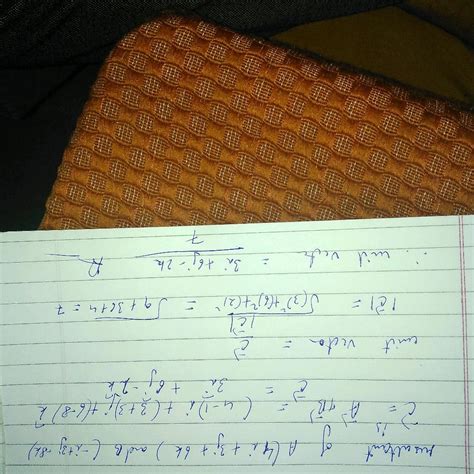 resultant of A(4i + 3j + 6k) and B(-i + 3j - 8k)
is
C⃗ = A⃗ + B⃗ = (4-1)i + (3+3)j + (6-8)k
C⃗ = 3i + 6j - 2k
unit vector = C⃗ / |C⃗|
|C⃗| = √(3)²+(6)²+(2)² = √9+36+4 = 7
∴ unit vector = 3i + 6j - 2k / 7